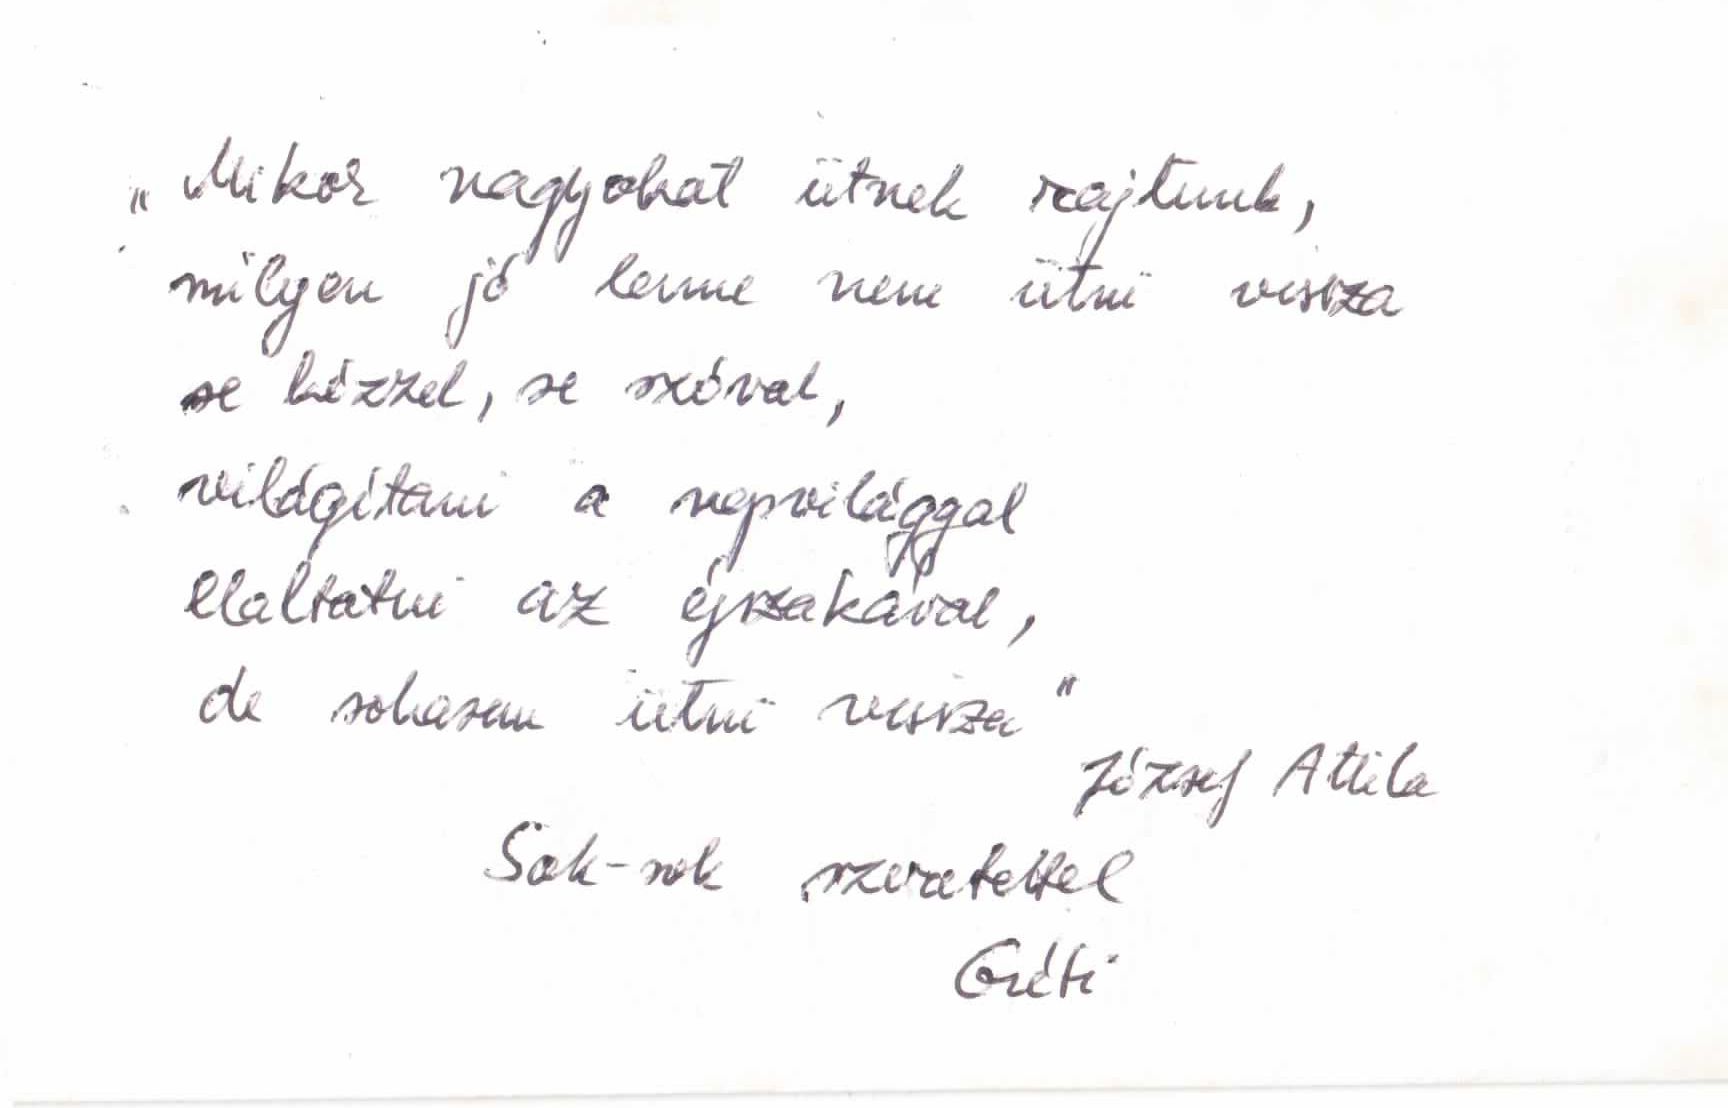 „Mikor nagyokat ütnek rajtunk,
milyen jó lenne nem ütni vissza
se kézzel, se szóval,
világítani a napvilággal
elaltatni az éjszakával,
de sohasem ütni vissza"
József Attila
Sok-sok szeretettel
Gréti